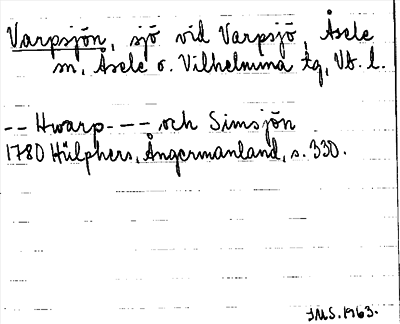 Varpsjön, sjö vid Varpsjö, Åsele
sn, Åsele o. Vilhelmina tg, Vb. l.
-- Hwarp- --- och Simsjön
1780 Hülphers, Ångermanland, s. 330.
JMS. 1963.